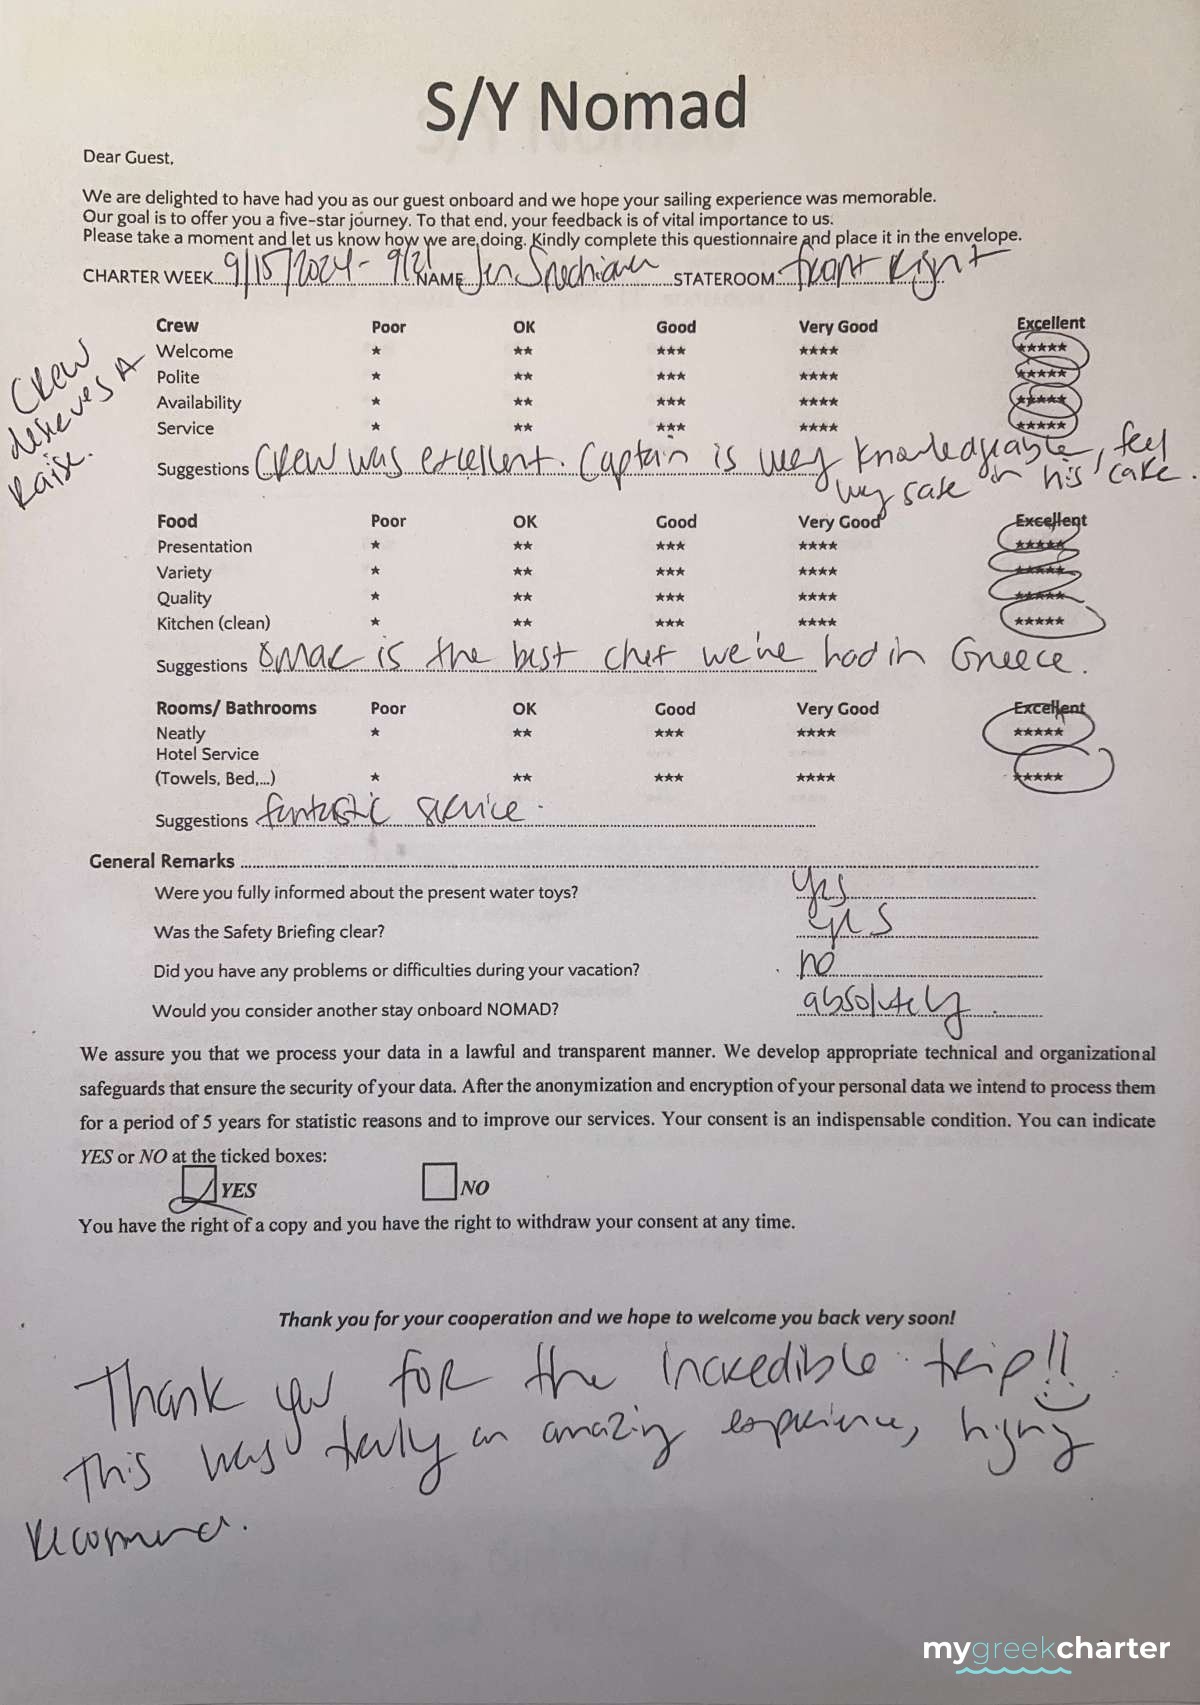 S/Y Nomad
Dear Guest,
We are delighted to have had you as our guest onboard and we hope your sailing experience was memorable.
Our goal is to offer you a five-star journey. To that end, your feedback is of vital importance to us.
Please take a moment and let us know how we are doing. Kindly complete this questionnaire and place it in the envelope.
CHARTER WEEK 9/15/2024 - 9/21 NAME Jen STATEROOM front Right
Crew Poor OK Good Very Good Excellent
Welcome ★ ★★ ★★★ ★★★★ ★★★★★
Polite ★ ★★ ★★★ ★★★★ ★★★★★
Availability ★ ★★ ★★★ ★★★★ ★★★★★
Service ★ ★★ ★★★ ★★★★ ★★★★★
Crew
deserves A
raise.
Suggestions Crew was excellent. Captain is very knowledgeable, feel
very safe in his care.
Food Poor OK Good Very Good Excellent
Presentation ★ ★★ ★★★ ★★★★ ★★★★★
Variety ★ ★★ ★★★ ★★★★ ★★★★★
Quality ★ ★★ ★★★ ★★★★ ★★★★★
Kitchen (clean) ★ ★★ ★★★ ★★★★ ★★★★★
Suggestions is the best chef we've had in Greece.
Rooms/ Bathrooms Poor OK Good Very Good Excellent
Neatly ★ ★★ ★★★ ★★★★ ★★★★★
Hotel Service
(Towels, Bed,...) ★ ★★ ★★★ ★★★★ ★★★★★
Suggestions fantastic service.
General Remarks
Were you fully informed about the present water toys? yes
Was the Safety Briefing clear? yes
Did you have any problems or difficulties during your vacation? no
Would you consider another stay onboard NOMAD? absolutely.
We assure you that we process your data in a lawful and transparent manner. We develop appropriate technical and organizational
safeguards that ensure the security of your data. After the anonymization and encryption of your personal data we intend to process them
for a period of 5 years for statistic reasons and to improve our services. Your consent is an indispensable condition. You can indicate
YES or NO at the ticked boxes:
YES NO
You have the right of a copy and you have the right to withdraw your consent at any time.
Thank you for your cooperation and we hope to welcome you back very soon!
Thank you for the incredible trip!!
This was truly an amazing experience, highly
recommend.
mygreekcharter